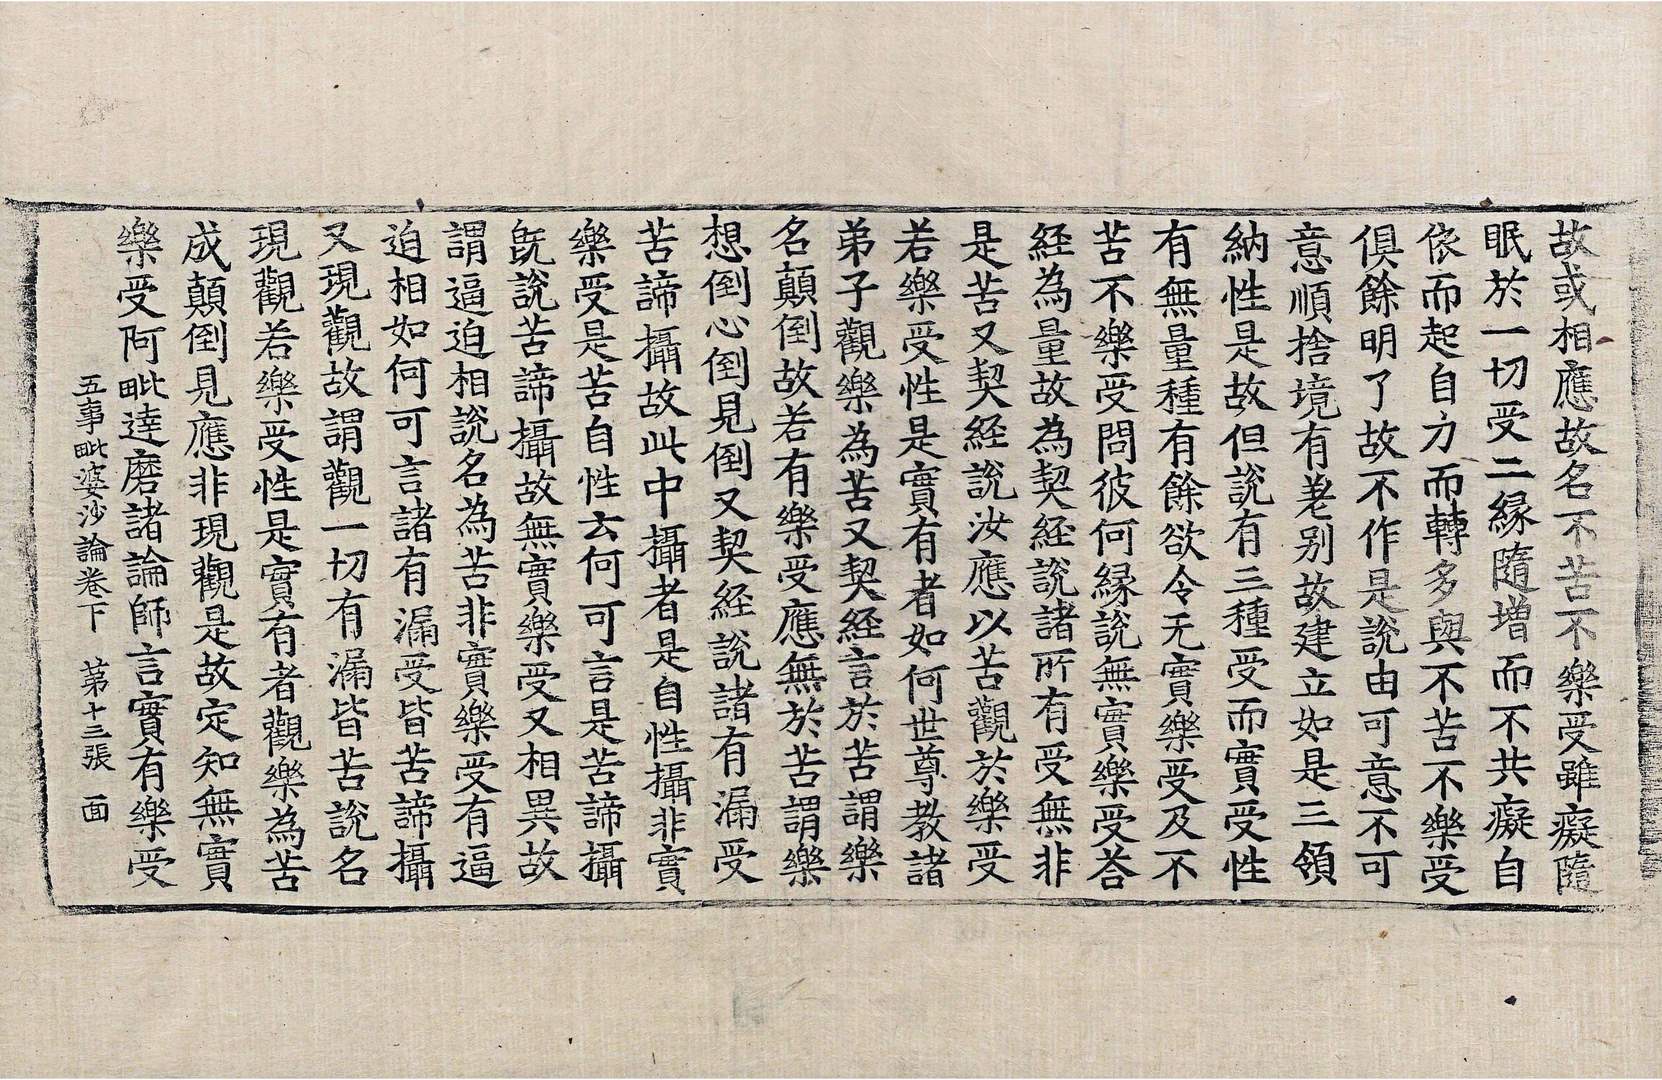 故或相應故名不苦不樂受雖癡隨
眠於一切受二縁隨增而不共癡自
依而起自力而轉多與不苦不樂受
俱餘明了故不作是說由可意不可
意順捨境有差別故建立如是三領
納性是故但說有三種受而實受性
有無量種有餘欲令无實樂受及不
苦不樂受問彼何縁說無實樂受荅
経為量故為契経說諸所有受無非
是苦又契経說汝應以苦觀於樂受
若樂受性是實有者如何世尊教諸
弟子觀樂為苦又契経言於苦謂樂
名顛倒故若有樂受應無於苦謂樂
想倒心倒見倒又契経說諸有漏受
苦諦攝故此中攝者是自性攝非實
樂受是苦自性云何可言是苦諦攝
旣說苦諦攝故無實樂受又相異故
謂逼迫相說名為苦非實樂受有逼
迫相如何可言諸有漏受皆苦諦攝
又現觀故謂觀一切有漏皆苦說名
現觀若樂受性是實有者觀樂為苦
成顛倒見應非現觀是故定知無實
樂受阿毗達磨諸論師言實有樂受
五事毗婆沙論卷下　第十三張　面